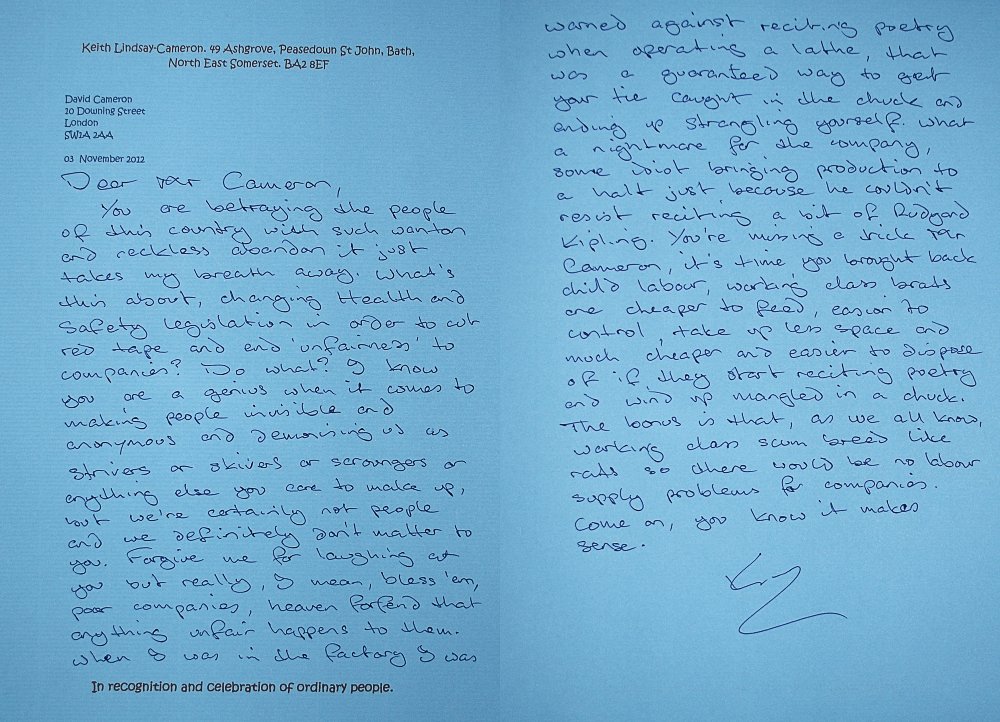 Keith Lindsay-Cameron. 49 Ashgrove, Peasedown St John, Bath,
North East Somerset. BA2 8EF
David Cameron
10 Downing Street
London
SW1A 2AA
03 November 2012
Dear Mr Cameron,
You are betraying the people
of this country with such wanton
and reckless abandon it just
takes my breath away. What's
this about, changing Health and
Safety legislation in order to cut
red tape and end 'unfairness' to
companies? Do what? I know
you are a genius when it comes to
making people invisible and
anonymous and demonising us as
strivers or skivers or scroungers or
anything else you care to make up,
but we're certainly not people
and we definitely don't matter to
you. Forgive me for laughing at
you but really, I mean, bless 'em,
poor companies, heaven forfend that
anything unfair happens to them.
When I was in the factory I was
In recognition and celebration of ordinary people.
warned against reciting poetry
when operating a lathe, that
was a guaranteed way to get
your tie caught in the chuck and
ending up strangling yourself. What
a nightmare for the company,
some idiot bringing production to
a halt just because he couldn't
resist reciting a bit of Rudyard
Kipling. You're missing a trick Mr
Cameron, it's time you brought back
child labour, working class brats
are cheaper to feed, easier to
control, take up less space and
much cheaper and easier to dispose
of if they start reciting poetry
and wind up mangled in a chuck.
The bonus is that, as we all know,
working class scum breed like
rats so there would be no labour
supply problems for companies.
Come on, you know it makes
sense.